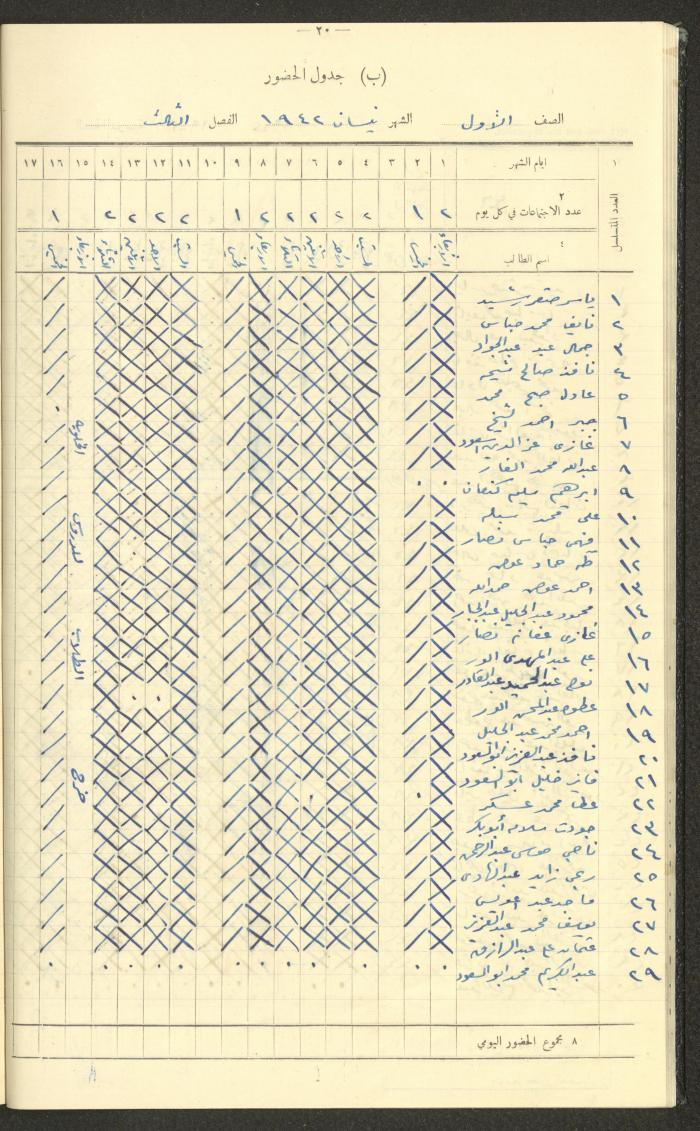 — ٢٠ —
(ب) جدول الحضور
الصف الاول الشهر نيسان ١٩٤٢ الفصل الثالث
١ ايام الشهر ١ ٢ ٣ ٤ ٥ ٦ ٧ ٨ ٩ ١٠ ١١ ١٢ ١٣ ١٤ ١٥ ١٦ ١٧
العدد المتسلسل
٢
عدد الاجتماعات في كل يوم ٢ ١ ٢ ٢ ٢ ٢ ٢ ١ ٢ ٢ ٢ ٢ ١
٤
اسم الطالب الاربعاء الخميس السبت الاحد الاثنين الثلاثاء الاربعاء الخميس السبت الاحد الاثنين الثلاثاء الاربعاء الخميس
١ ياسر
٢ نايف محمد عباس
٣ جمال عيد عبدالجواد
٤ نافذ صالح
٥ عادل محمد
٦ جبر احمد الشيخ
٧ غازي عزالدين
٨ عبدالله محمد
٩ ابرهيم سليم كنعان
١٠ علي محمد
١١ فهمي عباس نصار
١٢ طه حماد عوض
١٣ احمد عوض حمدالله
١٤ محمود عبدالجليل عبدالجبار
١٥ غازي نصار
١٦ علي عبدالمهدي
١٧ نوح عبدالحميد عبدالقادر
١٨ عبدالمحسن
١٩ احمد محمد عبدالجليل
٢٠ نافذ عبدالعزيز ابوالسعود
٢١ فايز خليل ابوالسعود
٢٢ عطا محمد عسكر
٢٣ جودت سلامه أبوبكر
٢٤ ناجي موسى عبدالرحمن
٢٥ ربحي زايد عبدالهادي
٢٦ ماجد عيد
٢٧ يوسف محمد عبدالعزيز
٢٨ عثمان علي عبدالرازق
٢٩ عبدالكريم محمد ابوالسعود
خرج الطلاب للدروس
٨ مجموع الحضور اليومي